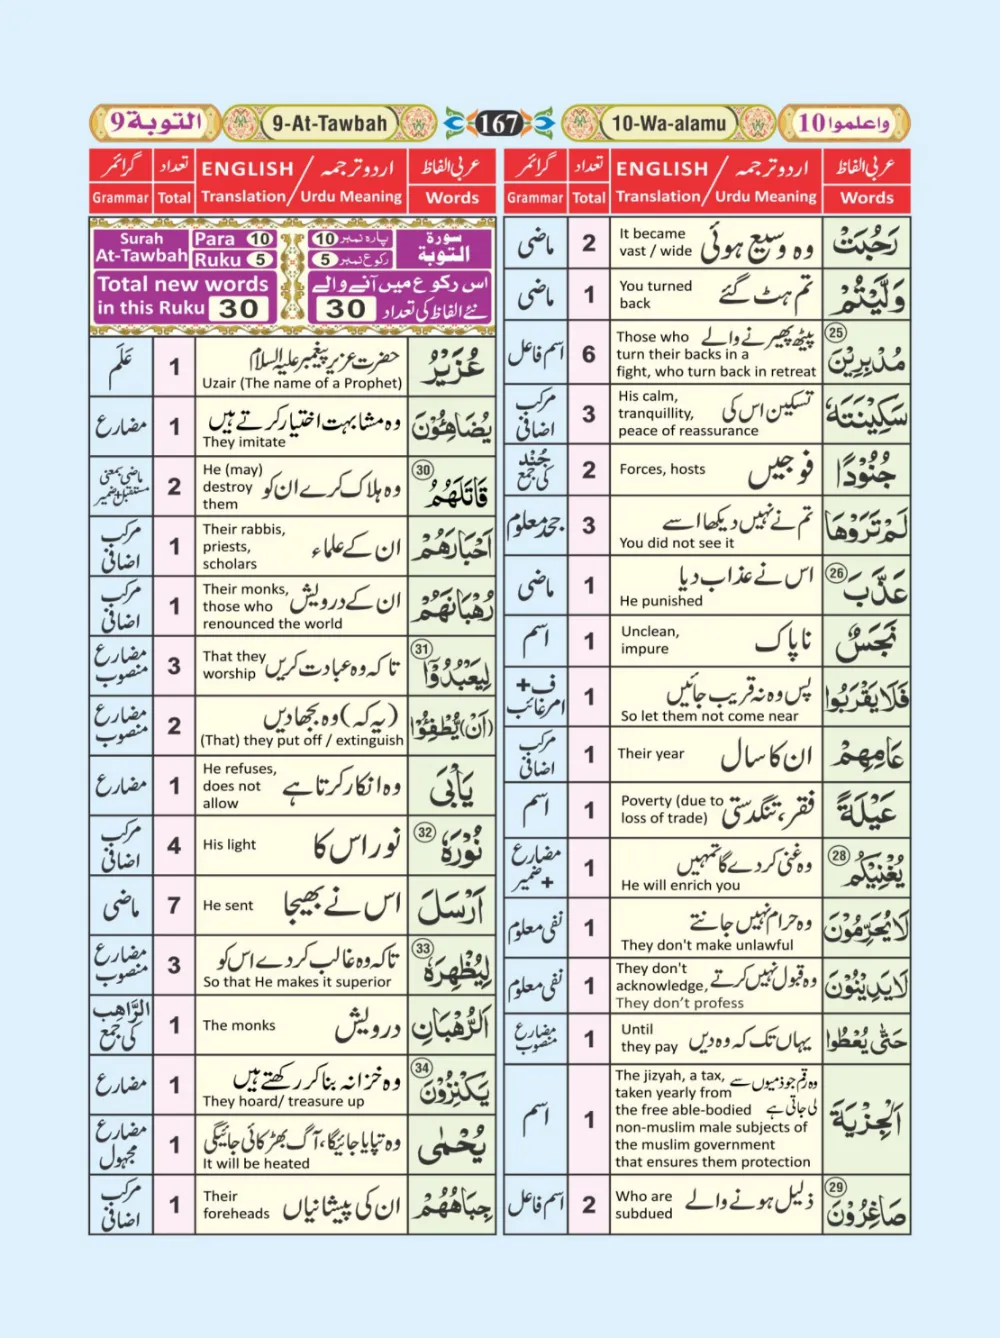 واعلموا 10
10-Wa-alamu
167
9-At-Tawbah
التوبة 9
عربی الفاظ
ENGLISH / اردو ترجمہ
تعداد
گرائمر
Words
Translation / Urdu Meaning
Total
Grammar
رَحُبَتْ
It became vast / wide
وہ وسیع ہوئی
2
ماضی
وَلَّيْتُمْ
You turned back
تم ہٹ گئے
1
ماضی
25
مُدْبِرِيْنَ
پیٹھ پھیرنے والے
Those who turn their backs in a fight, who turn back in retreat
6
اسم فاعل
سَكِيْنَتَهٗ
His calm, tranquillity, peace of reassurance
تسکین اس کی
3
مرکب اضافی
جُنُوْدًا
Forces, hosts
فوجیں
2
جُنْد کی جمع
لَمْ تَرَوْهَا
تم نے نہیں دیکھا اسے
You did not see it
3
جحد معلوم
26
عَذَّبَ
اس نے عذاب دیا
He punished
1
ماضی
نَجَسٌ
Unclean, impure
ناپاک
1
اسم
فَلَا يَقْرَبُوا
پس وہ نہ قریب جائیں
So let them not come near
1
ف + امر غائب
عَامِهِمْ
Their year
ان کا سال
1
مرکب اضافی
عَيْلَةً
Poverty (due to loss of trade)
فقر، تنگدستی
1
اسم
28
يُغْنِيْكُمْ
وہ غنی کر دے گا تمہیں
He will enrich you
1
مضارع + ضمیر
لَا يُحَرِّمُوْنَ
وہ حرام نہیں جانتے
They don't make unlawful
1
نفی معلوم
لَا يَدِيْنُوْنَ
They don't acknowledge,
وہ قبول نہیں کرتے
They don’t profess
1
نفی معلوم
حَتّٰى يُعْطُوا
Until they pay
یہاں تک کہ وہ دیں
1
مضارع منصوب
الْجِزْيَةَ
وہ رقم جو ذمیوں سے لی جاتی ہے
The jizyah, a tax, taken yearly from the free able-bodied non-muslim male subjects of the muslim government that ensures them protection
1
اسم
29
صَاغِرُوْنَ
Who are subdued
ذلیل ہونے والے
2
اسم فاعل
عربی الفاظ
ENGLISH / اردو ترجمہ
تعداد
گرائمر
Words
Translation / Urdu Meaning
Total
Grammar
سورة التوبة
پارہ نمبر 10
رکوع نمبر 5
Surah At-Tawbah
Para 10
Ruku 5
اس رکوع میں آنے والے
نئے الفاظ کی تعداد 30
Total new words
in this Ruku 30
عُزَيْرٌ
حضرت عزیر پیغمبر علیہ السلام
Uzair (The name of a Prophet)
1
عَلَم
يُضَاهِئُوْنَ
وہ مشابہت اختیار کرتے ہیں
They imitate
1
مضارع
30
قَاتَلَهُمُ
He (may) destroy them
وہ ہلاک کرے ان کو
2
ماضی بمعنی مستقبل+ضمیر
اَحْبَارَهُمْ
Their rabbis, priests, scholars
ان کے علماء
1
مرکب اضافی
رُهْبَانَهُمْ
Their monks, those who renounced the world
ان کے درویش
1
مرکب اضافی
31
لِيَعْبُدُوْٓا
That they worship
تاکہ وہ عبادت کریں
3
مضارع منصوب
(اَنْ) يُّطْفِئُوْا
(یہ کہ) وہ بجھا دیں
(That) they put off / extinguish
2
مضارع منصوب
يَاْبَى
He refuses, does not allow
وہ انکار کرتا ہے
1
مضارع
32
نُوْرَهٗ
His light
نور اس کا
4
مرکب اضافی
اَرْسَلَ
He sent
اس نے بھیجا
7
ماضی
33
لِيُظْهِرَهٗ
تاکہ وہ غالب کر دے اس کو
So that He makes it superior
3
مضارع منصوب
الرُّهْبَانِ
The monks
درویش
1
الرَّاهِب کی جمع
34
يَكْنِزُوْنَ
وہ خزانہ بنا کر رکھتے ہیں
They hoard/ treasure up
1
مضارع
يُحْمٰى
وہ تپایا جائیگا، آگ بھڑکائی جائیگی
It will be heated
1
مضارع مجہول
جِبَاهُهُمْ
Their foreheads
ان کی پیشانیاں
1
مرکب اضافی